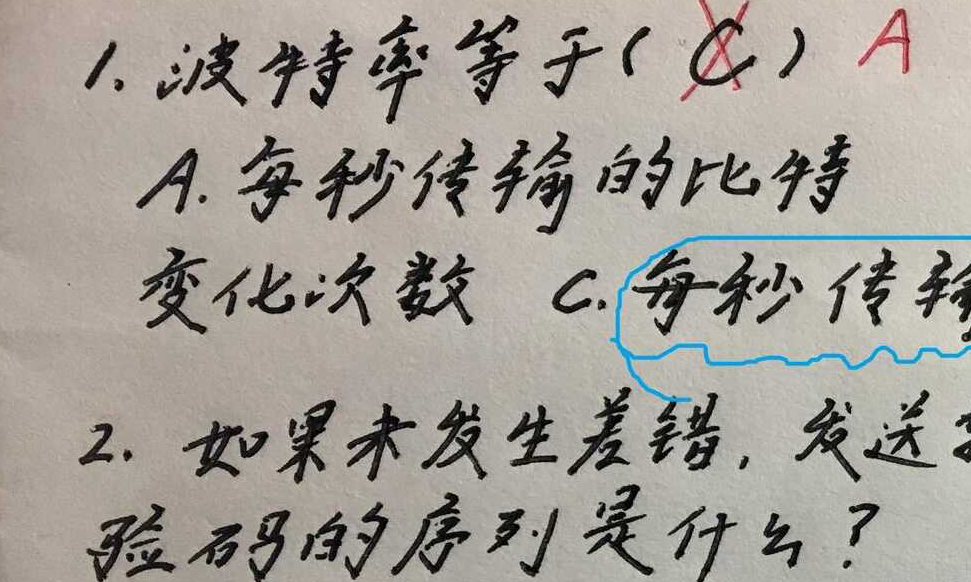 1. 波特率等于( C ) A
A. 每秒传输的比特
变化次数 C. 每秒传输
2. 如果未发生差错, 发送
验码的序列是什么?